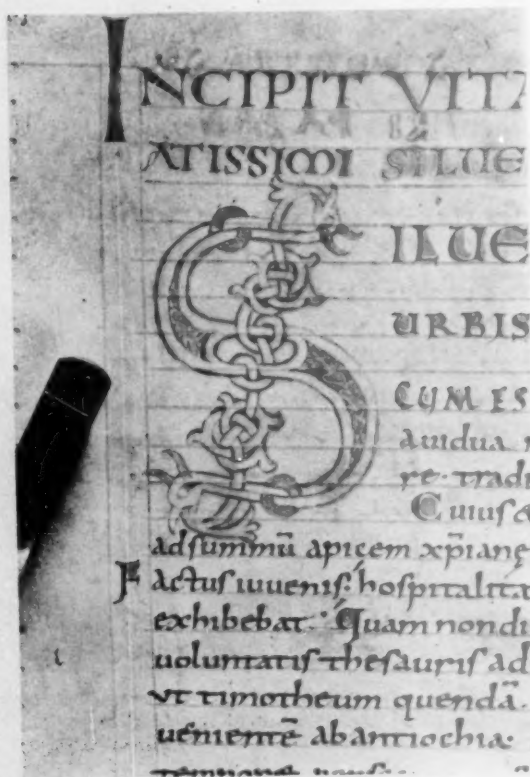 INCIPIT VITA
ATISSIMI SILUE
SILUE
URBIS
CUM ES
a uidua
re tradi
Cuius &
ad summū apicem xp̄ianę
Factus iuuenis: hospitalita
exhibebat. Quam nondi
uoluntatis thesauris ad
ut timotheum quendā.
uenientē ab antiochia: